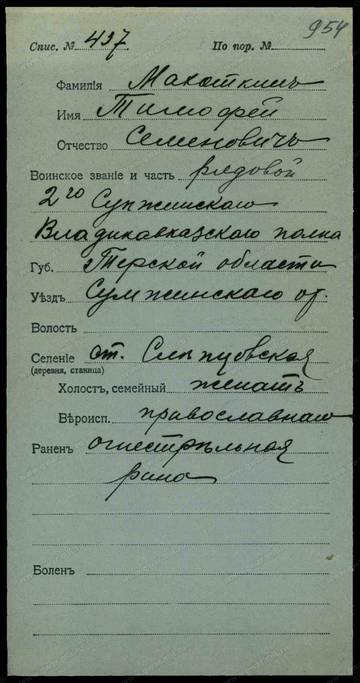 954
Спис. № 437 По пор. №
Фамилія Махоткинъ
Имя Тимофей
Отчество Семеновичъ
Воинское званіе и часть рядовой
2го Сунженскаго
Владикавказскаго полка
Губ. Терской области
Уѣздъ Сунженскаго от.
Волость
Селеніе ст. Слѣпцовская
(деревня, станица)
Холостъ, семейный женатъ
Вѣроисп. православнаго
Раненъ огнестрѣльная
рана
Боленъ